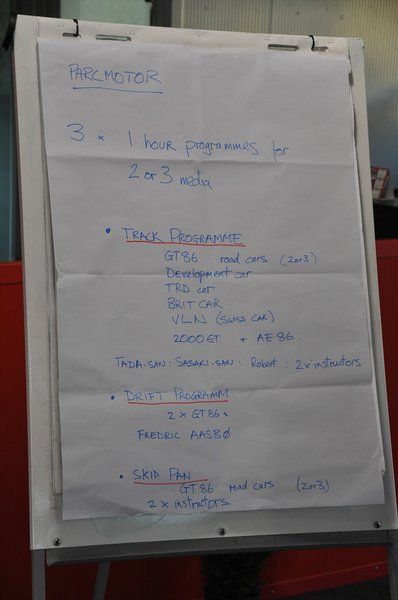 PARCMOTOR
3 x 1 hour programmes for
2 or 3 media.
• TRACK PROGRAMME
GT86 road cars (2 or 3)
Development car
TRD car
BRIT CAR
VLN (SWISS CAR)
2000GT + AE86.
TADA-SAN : SASAKI-SAN : Robert : 2 x instructors
• DRIFT PROGRAMM
2 x GT86s
FREDRIC AASBØ
• SKID PAN
GT86 road cars (2 or 3)
2 x instructors